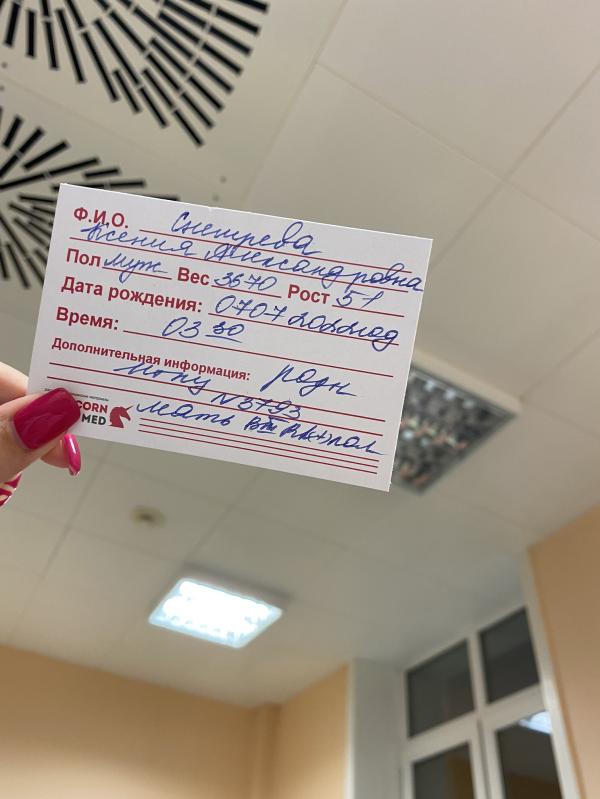 Ф.И.О. Снегирева
Ксения Александровна
Пол муж Вес 3670 Рост 51
Дата рождения: 07 07 2022год
Время: 03 30
Дополнительная информация: родн
N 3793
CORN
MED
мать III Rh+пол